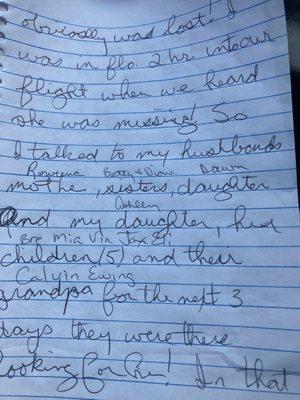 obviously was lost! I
was in flo. 2 hr. into our
flight when we heard
she was missing! So
I talked to my hushbands
Rowena Dawn
mothe, sisters, daughter
Ashley
and my daughter, her
Bre Mia Vin Jax Eli
children (5) and their
Calvin Ewing
grandpa for the next 3
days they were there
looking for her! In that